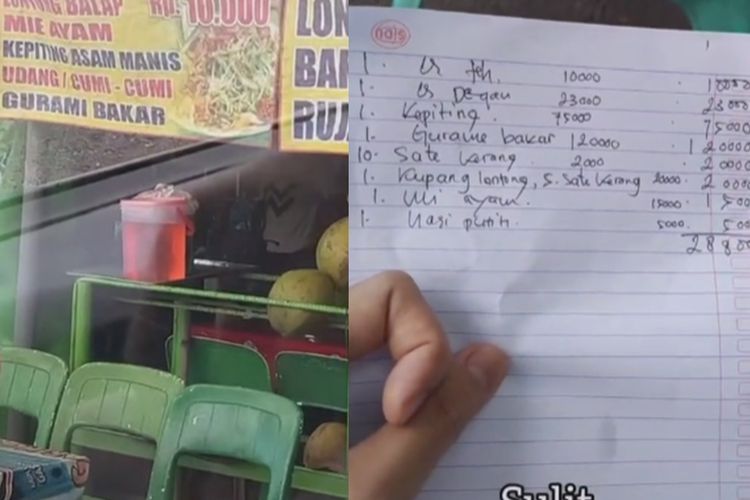 LONTONG BALAP RP. 10.000
MIE AYAM
KEPITING ASAM MANIS
UDANG / CUMI - CUMI
GURAMI BAKAR
LON
BA
RUJ
1. Es teh. 10000
1. Es Degan 23000 23000
1. Kepiting. 75000 75000
1. Gurame bakar 120000 120000
10. Sate kerang. 2000 20000
1. Kupang lontong, 5. Sate kerang 20000. 2000
1. Mi ayam. 15000. 1500
1. Nasi putih. 5000. 500
2880
Sulit